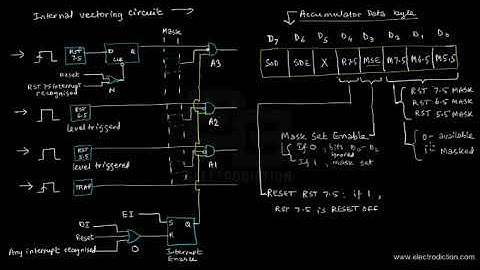 Internal vectoring circuit
Mask
RST 7.5
D Q
CLR
A3
Reset
RST 7.5 Interrupt recognised
N
RST 6.5
level triggered
A2
RST 5.5
level triggered
A1
TRAP
EI
S Q
R
DI
Reset
Any interrupt recognised
O
Interrupt Enable
Accumulator Data byte
D7 D6 D5 D4 D3 D2 D1 D0
SOD SDE X R7.5 MSE M7.5 M6.5 M5.5
RST 7.5 MASK
RST 6.5 MASK
RST 5.5 MASK
0- available
1- Masked
Mask Set Enable
If 0, bits D0-D2 ignored
If 1, mask set
RESET RST 7.5: if 1,
RST 7.5 is RESET OFF
www.electrodiction.com